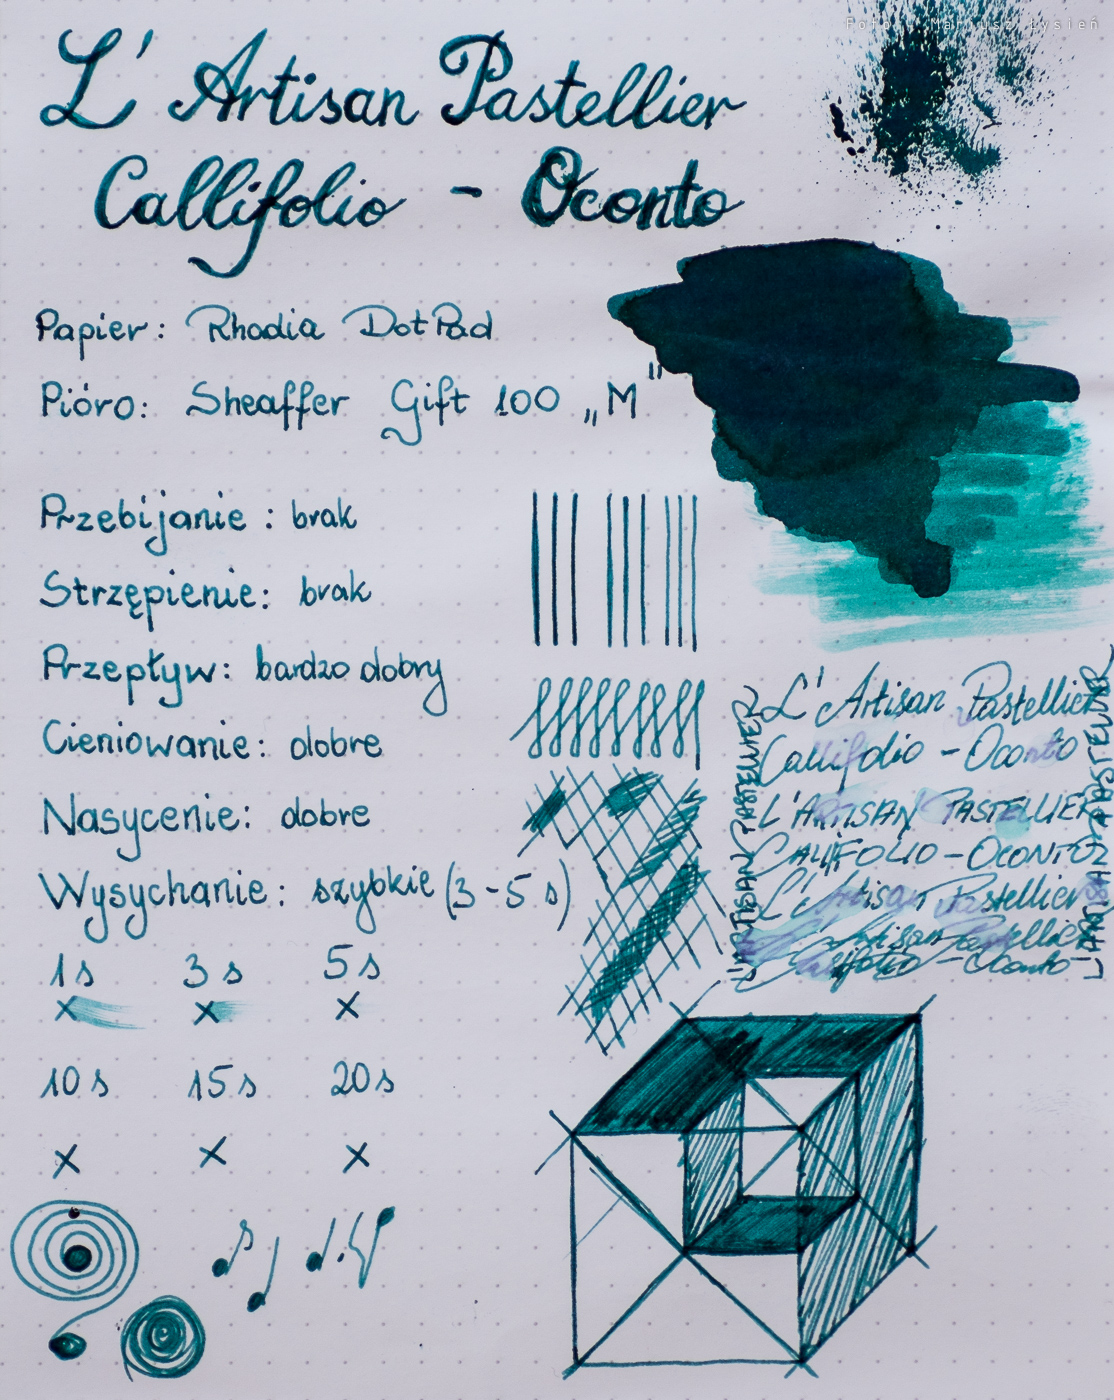 Foto: Mariusz Łysień
L' Artisan Pastellier
Callifolio - Oconto
Papier: Rhodia DotPad
Pióro: Sheaffer Gift 100 „M"
Przebijanie: brak
Strzępienie: brak
Przepływ: bardzo dobry
Cieniowanie: dobre
Nasycenie: dobre
Wysychanie: szybkie (3-5 s)
1s 3s 5s
10s 15s 20s
L' Artisan Pastellier
Callifolio - Oconto
L'ARTISAN PASTELLIER
CALLIFOLIO - OCONTO
L' Artisan Pastellier
L' Artisan Pastellier
Callifolio - Oconto
L'ARTISAN PASTELLIER
L'ARTISAN PASTELLIER